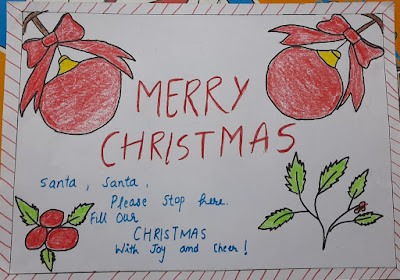 MERRY
CHRISTMAS
Santa, Santa,
Please stop here.
Fill Our
CHRISTMAS
With Joy and Cheer!